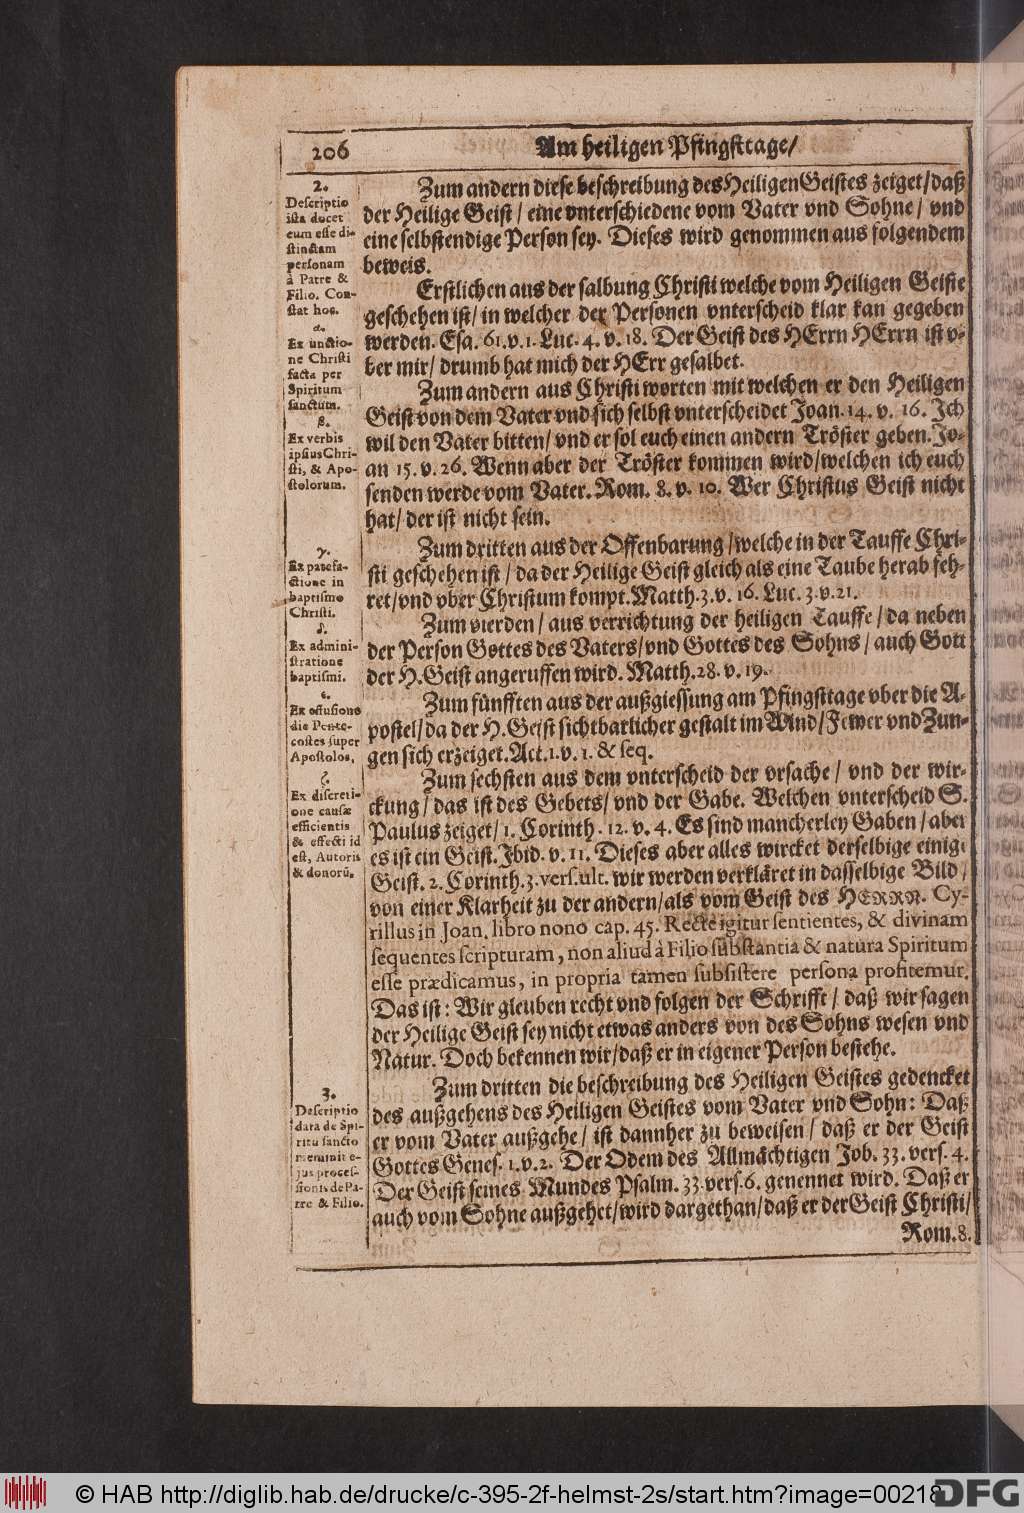 206
Am heiligen Pfingsttage/
2.
Descriptio
ista docet
eum esse di-
stinctam
personam
à Patre &
Filio. Con-
stat hoc.
α.
Ex unctio-
ne Christi
facta per
Spiritum
sanctum.
β.
Ex verbis
ipsius Chri-
sti, & Apo-
stolorum.
γ.
Ex patefa-
ctione in
baptismo
Christi.
δ.
Ex admini-
stratione
baptismi.
ε.
Ex effusione
die Pente-
costes super
Apostolos.
ζ.
Ex discreti-
one causæ
efficientis
& effecti id
est, Autoris
& donorũ.
3.
Descriptio
data de Spi-
ritu sancto
meminit e-
jus proces-
sionis de Pa-
tre & Filio.
Zum andern diese beschreibung des Heiligen Geistes zeiget/daß
der Heilige Geist/ eine vnterschiedene vom Vater vnd Sohne/ vnd
eine selbstendige Person sey. Dieses wird genommen aus folgendem
beweis.
Erstlichen aus der salbung Christi welche vom Heiligen Geiste
geschehen ist/ in welcher der Personen vnterscheid klar kan gegeben
werden. Esa. 61. v. 1. Luc. 4. v. 18. Der Geist des HErrn HErrn ist v-
ber mir/ drumb hat mich der HErr gesalbet.
Zum andern aus Christi worten mit welchen er den Heiligen
Geist von dem Vater vnd sich selbst vnterscheidet Joan. 14. v. 16. Ich
wil den Vater bitten/ vnd er sol euch einen andern Tröster geben. Jo-
an 15. v. 26. Wenn aber der Tröster kommen wird/welchen ich euch
senden werde vom Vater. Rom. 8. v. 10. Wer Christus Geist nicht
hat/ der ist nicht sein.
Zum dritten aus der Offenbarung/welche in der Tauffe Chri-
sti geschehen ist/ da der Heilige Geist gleich als eine Taube herab feh-
ret/vnd vber Christum kompt. Matth. 3. v. 16. Luc. 3. v. 21.
Zum vierden/ aus verrichtung der heiligen Tauffe/ da neben
der Person Gottes des Vaters/vnd Gottes des Sohns/ auch Gott
der H. Geist angeruffen wird. Matth. 28. v. 19.
Zum fünfften aus der außgiessung am Pfingsttage vber die A-
postel/ da der H. Geist sichtbarlicher gestalt im Wind/ Fewer vnd Zun-
gen sich erzeiget. Act. 1. v. 1. & seq.
Zum sechsten aus dem vnterscheid der vrsache/ vnd der wir-
ckung/ das ist des Gebets/ vnd der Gabe. Welchen vnterscheid S.
Paulus zeiget/ 1. Corinth. 12. v. 4. Es sind mancherley Gaben/ aber
es ist ein Geist. Ibid. v. 11. Dieses aber alles wircket derselbige einige
Geist. 2. Corinth. 3. vers. ult. wir werden verkläret in dasselbige Bild/
von einer Klarheit zu der andern/als vom Geist des HERRN. Cy-
rillus in Joan. libro nono cap. 45. Recte igitur sentientes, & divinam
sequentes scripturam, non aliud à Filio substantia & natura Spiritum
esse prædicamus, in propria tamen subsistere persona profitemur.
Das ist: Wir gleuben recht vnd folgen der Schrifft/ daß wir sagen
der Heilige Geist sey nicht etwas anders von des Sohns wesen vnd
Natur. Doch bekennen wir/daß er in eigener Person bestehe.
Zum dritten die beschreibung des Heiligen Geistes gedencket
des außgehens des Heiligen Geistes vom Vater vnd Sohn: Daß
er vom Vater außgehe/ ist dannher zu beweisen/ daß er der Geist
Gottes Genes. 1. v. 2. Der Odem des Allmächtigen Job. 33. vers. 4.
Der Geist seines Mundes Psalm. 33. vers. 6. genennet wird. Daß er
auch vom Sohne außgehet/wird dargethan/daß er der Geist Christi/
Rom. 8.
© HAB http://diglib.hab.de/drucke/c-395-2f-helmst-2s/start.htm?image=00218
DFG